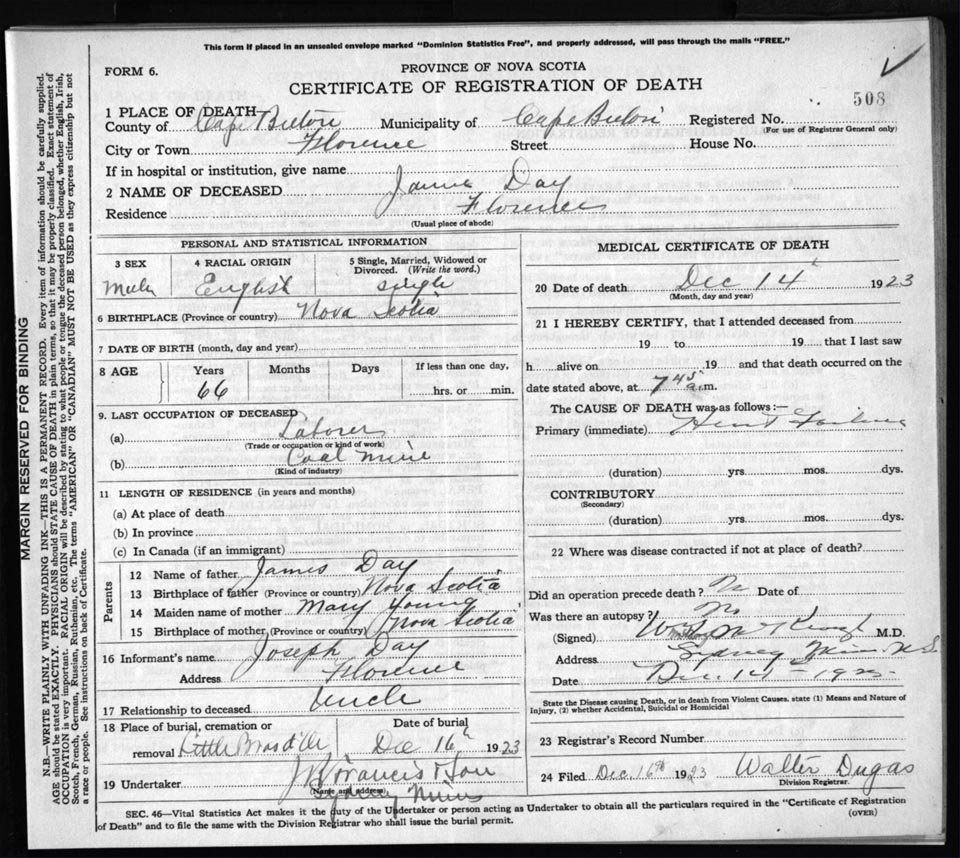 This form if placed in an unsealed envelope marked "Dominion Statistics Free", and properly addressed, will pass through the mails "FREE."
FORM 6.
PROVINCE OF NOVA SCOTIA
CERTIFICATE OF REGISTRATION OF DEATH
508
1 PLACE OF DEATH
County of Cape Breton Municipality of Cape Breton Registered No.
(For use of Registrar General only)
City or Town Florence Street House No.
If in hospital or institution, give name
2 NAME OF DECEASED James Day
Residence Florence
(Usual place of abode)
PERSONAL AND STATISTICAL INFORMATION
3 SEX 4 RACIAL ORIGIN 5 Single, Married, Widowed or Divorced. (Write the word.)
Male English single
6 BIRTHPLACE (Province or country) Nova Scotia
7 DATE OF BIRTH (month, day and year)
8 AGE Years Months Days If less than one day,
66 hrs. or min.
9. LAST OCCUPATION OF DECEASED
(a) Laborer
(Trade or occupation or kind of work)
(b) Coal Mine
(Kind of industry)
11 LENGTH OF RESIDENCE (in years and months)
(a) At place of death
(b) In province
(c) In Canada (if an immigrant)
Parents
12 Name of father James Day
13 Birthplace of father (Province or country) Nova Scotia
14 Maiden name of mother Mary Young
15 Birthplace of mother (Province or country) Nova Scotia
16 Informant's name Joseph Day
Address Florence
17 Relationship to deceased Uncle
18 Place of burial, cremation or Date of burial
removal Little Bras d'Or Dec 16th 1923
19 Undertaker & Son
(Name and address)
Sydney Mines
MEDICAL CERTIFICATE OF DEATH
20 Date of death Dec 14th 1923
(Month, day and year)
21 I HEREBY CERTIFY, that I attended deceased from
19 to 19 that I last saw
h alive on 19 and that death occurred on the
date stated above, at 7 45 a.m.
The CAUSE OF DEATH was as follows:—
Primary (immediate) Heart Failure
(duration) yrs. mos. dys.
CONTRIBUTORY
(Secondary)
(duration) yrs. mos. dys.
22 Where was disease contracted if not at place of death?
Did an operation precede death? No Date of
Was there an autopsy? No
(Signed) M.D.
Address Sydney Mines N.S.
Date Dec. 14th 1923
State the Disease causing Death, or in death from Violent Causes, state (1) Means and Nature of
Injury, (2) whether Accidental, Suicidal or Homicidal
23 Registrar's Record Number
24 Filed Dec. 16th 1923 Walter Dugas
Division Registrar.
SEC. 46—Vital Statistics Act makes it the duty of the Undertaker or person acting as Undertaker to obtain all the particulars required in the "Certificate of Registration
of Death" and to file the same with the Division Registrar who shall issue the burial permit.
(OVER)
MARGIN RESERVED FOR BINDING
N.B.—WRITE PLAINLY WITH UNFADING INK—THIS IS A PERMANENT RECORD. Every item of information should be carefully supplied.
AGE should be stated EXACTLY. PHYSICIANS should STATE CAUSE OF DEATH in plain terms, so that it may be properly classified. Exact statement of
OCCUPATION is very important. RACIAL ORIGIN will be described by stating to what people or tongue the deceased person belonged, whether English, Irish,
Scotch, French, German, Russian, Ruthenian, etc. The terms "AMERICAN" OR "CANADIAN" MUST NOT BE USED as they express citizenship but not
a race or people. See instructions on back of Certificate.